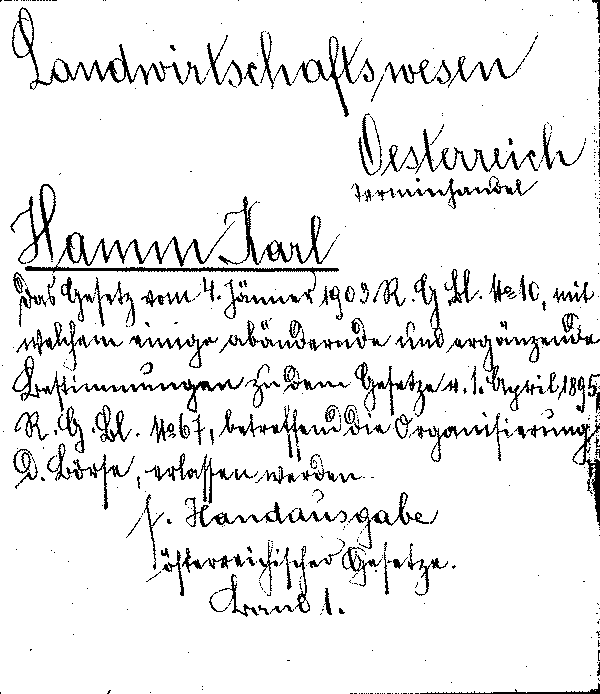 Landwirtschaftswesen
Oesterreich
Terminhandel
Hamm Karl
Das Gesetz vom 4. Jänner 1903 R. G. Bl. No 10, mit
welchem einige abändernde und ergänzende
Bestimmungen zu dem Gesetze v. 1. April 1895
R. G. Bl. No 67, betreffend die Organisierung
D. Börse, erlassen werden.
s. Handausgabe
österreichischer Gesetze.
Band 1.